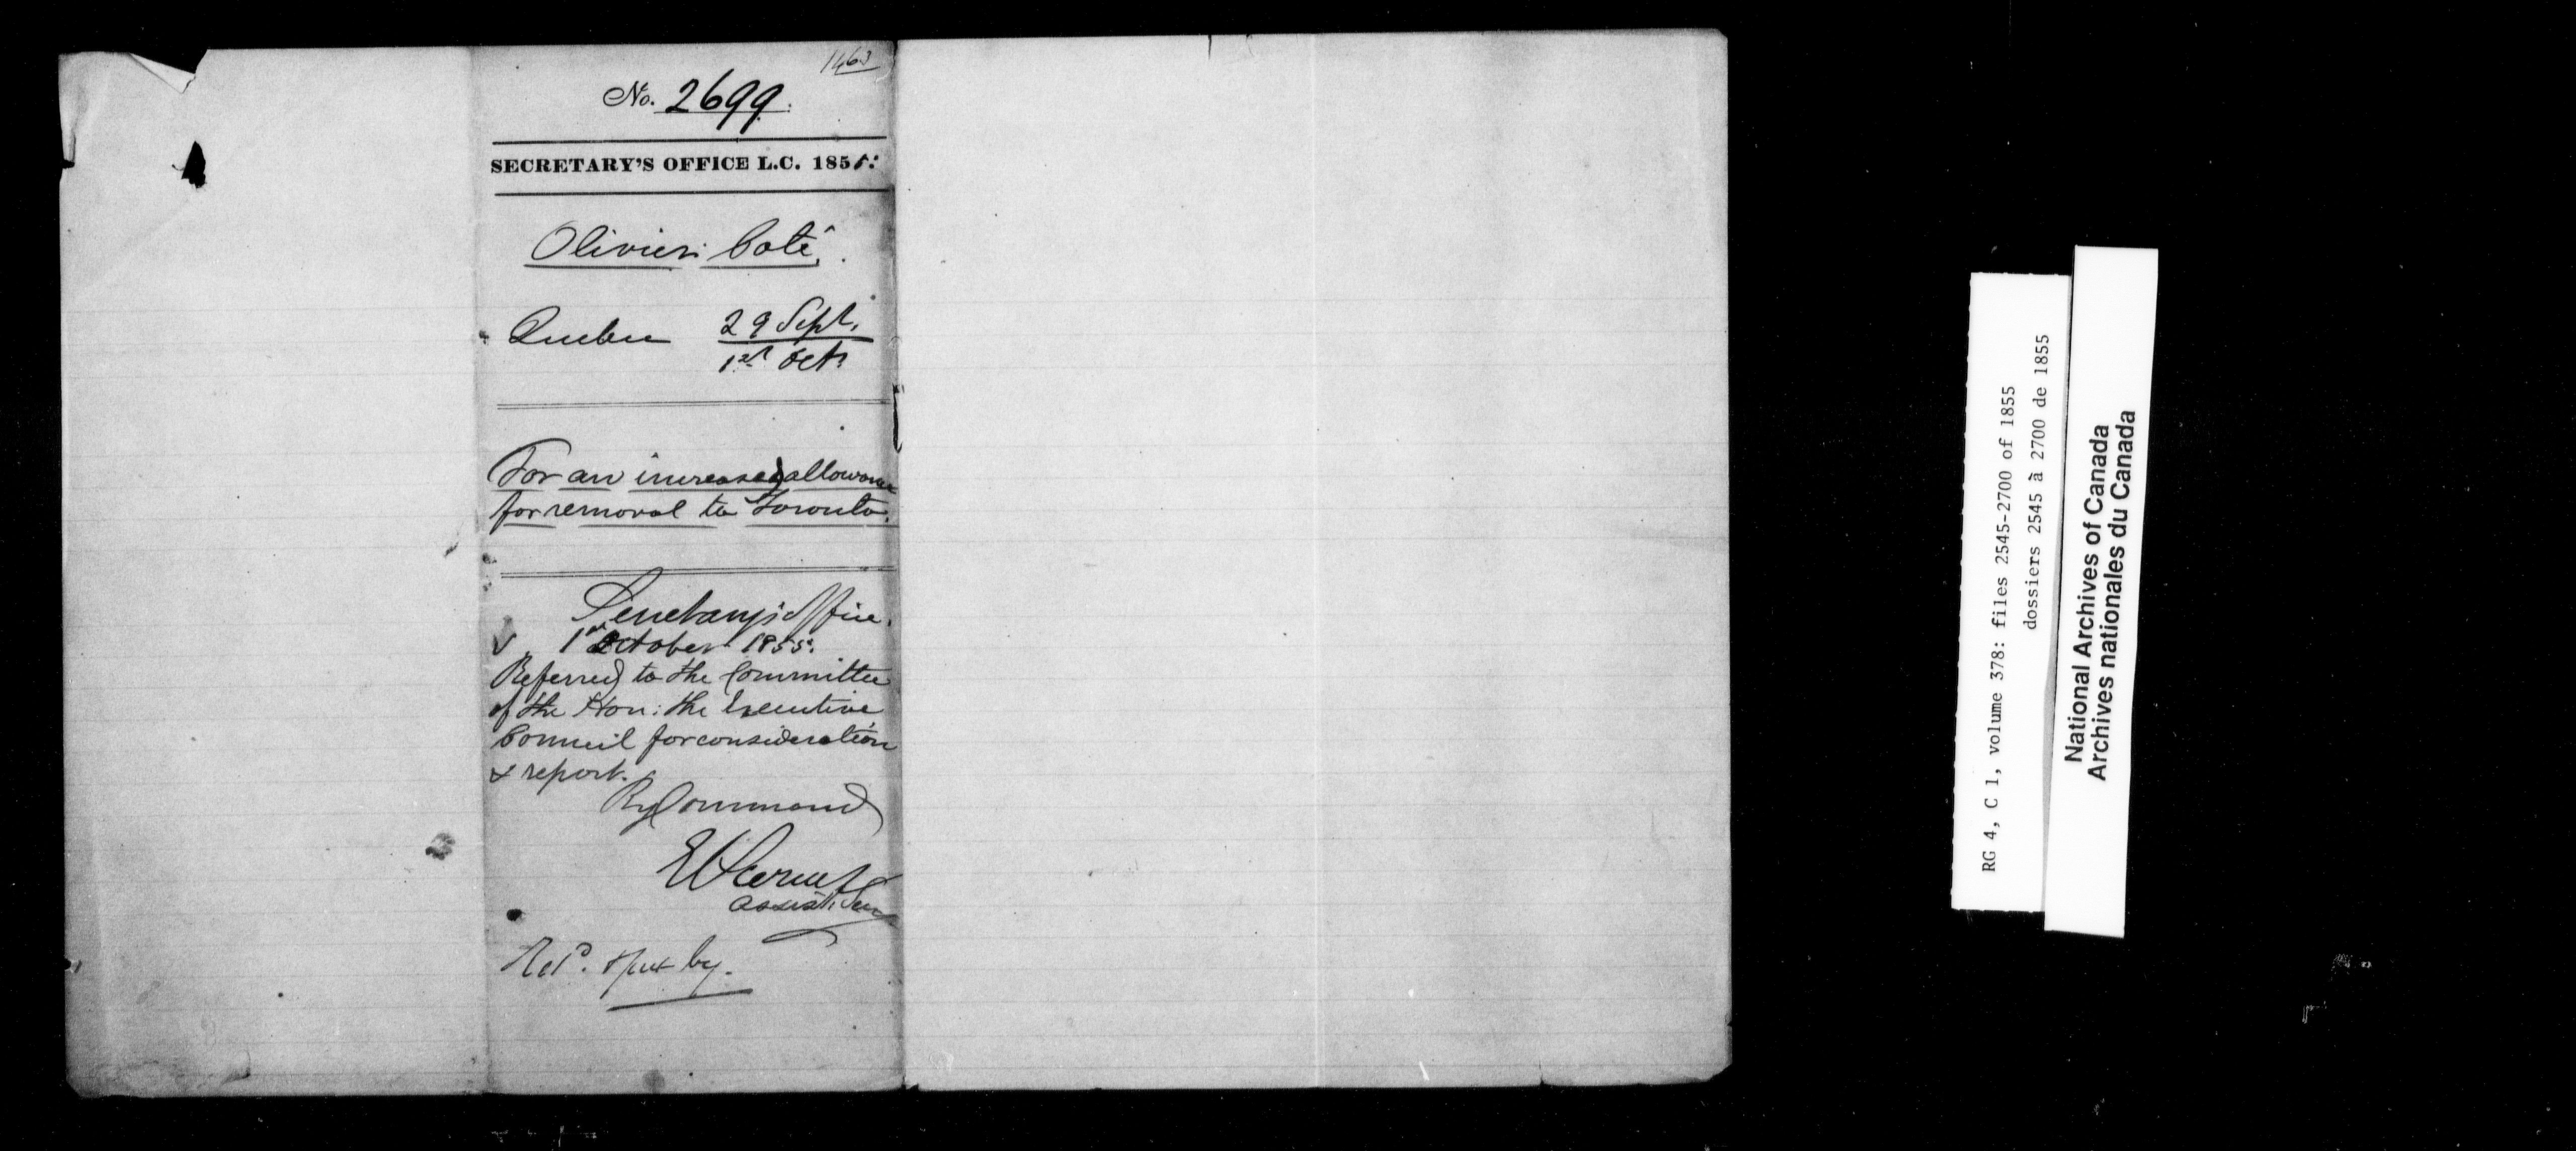 1463
No. 2699.
SECRETARY'S OFFICE L.C. 1855.
Olivier Coté.
Quebec 29 Sept.
1st Oct.
For an increased allowance
for removal to Toronto.
Secretary's Office.
1st October 1855.
Referred to the Committee
of the Hon: the Executive
Council for consideration
& report.
By Command
Assist. Sec
& put by.
RG 4, C 1, volume 378: files 2545-2700 of 1855
dossiers 2545 à 2700 de 1855
National Archives of Canada
Archives nationales du Canada